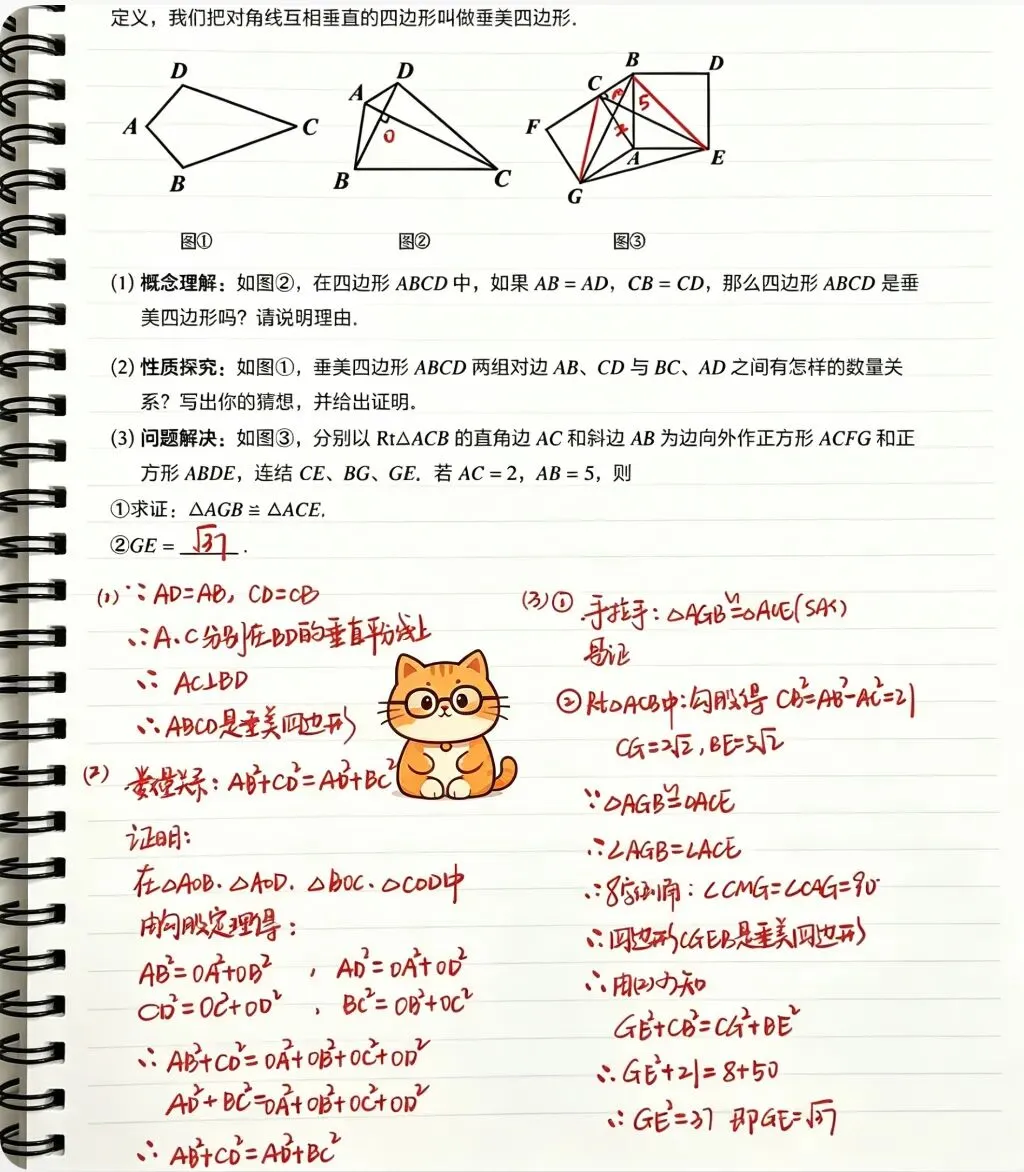 定义，我们把对角线互相垂直的四边形叫做垂美四边形.
D
A
C
B
图①
D
A
O
B
C
图②
B
D
C
5
F
A
E
G
图③
(1) 概念理解：如图②，在四边形 ABCD 中，如果 AB = AD，CB = CD，那么四边形 ABCD 是垂
美四边形吗？请说明理由.
(2) 性质探究：如图①，垂美四边形 ABCD 两组对边 AB、CD 与 BC、AD 之间有怎样的数量关
系？写出你的猜想，并给出证明。
(3) 问题解决：如图③，分别以 Rt△ACB 的直角边 AC 和斜边 AB 为边向外作正方形 ACFG 和正
方形 ABDE，连结 CE、BG、GE. 若 AC = 2，AB = 5，则
①求证：△AGB ≌ △ACE.
②GE = √37 .
(1) ∵ AD=AB, CD=CB
∴ A、C分别在BD的垂直平分线上
∴ AC⊥BD
∴ ABCD是垂美四边形
(2) 数量关系：AB²+CD²=AD²+BC²
证明：
在△AOB、△AOD、△BOC、△COD中
由勾股定理得：
AB²=OA²+OB² , AD²=OA²+OD²
CD²=OC²+OD² , BC²=OB²+OC²
∴ AB²+CD²=OA²+OB²+OC²+OD²
AD²+BC²=OA²+OB²+OC²+OD²
∴ AB²+CD²=AD²+BC²
(3) ① 手拉手：△AGB≌△ACE(SAS)
易证
② Rt△ACB中：勾股得 CB²=AB²-AC²=21
CG=2√2, BE=5√2
∵ △AGB≌△ACE
∴ ∠AGB=∠ACE
∴ 8字倒角：∠CMG=∠CAG=90°
∴ 四边形CGEB是垂美四边形
∴ 由(2)可知
GE²+CB²=CG²+BE²
∴ GE²+21=8+50
∴ GE²=37 即GE=√37